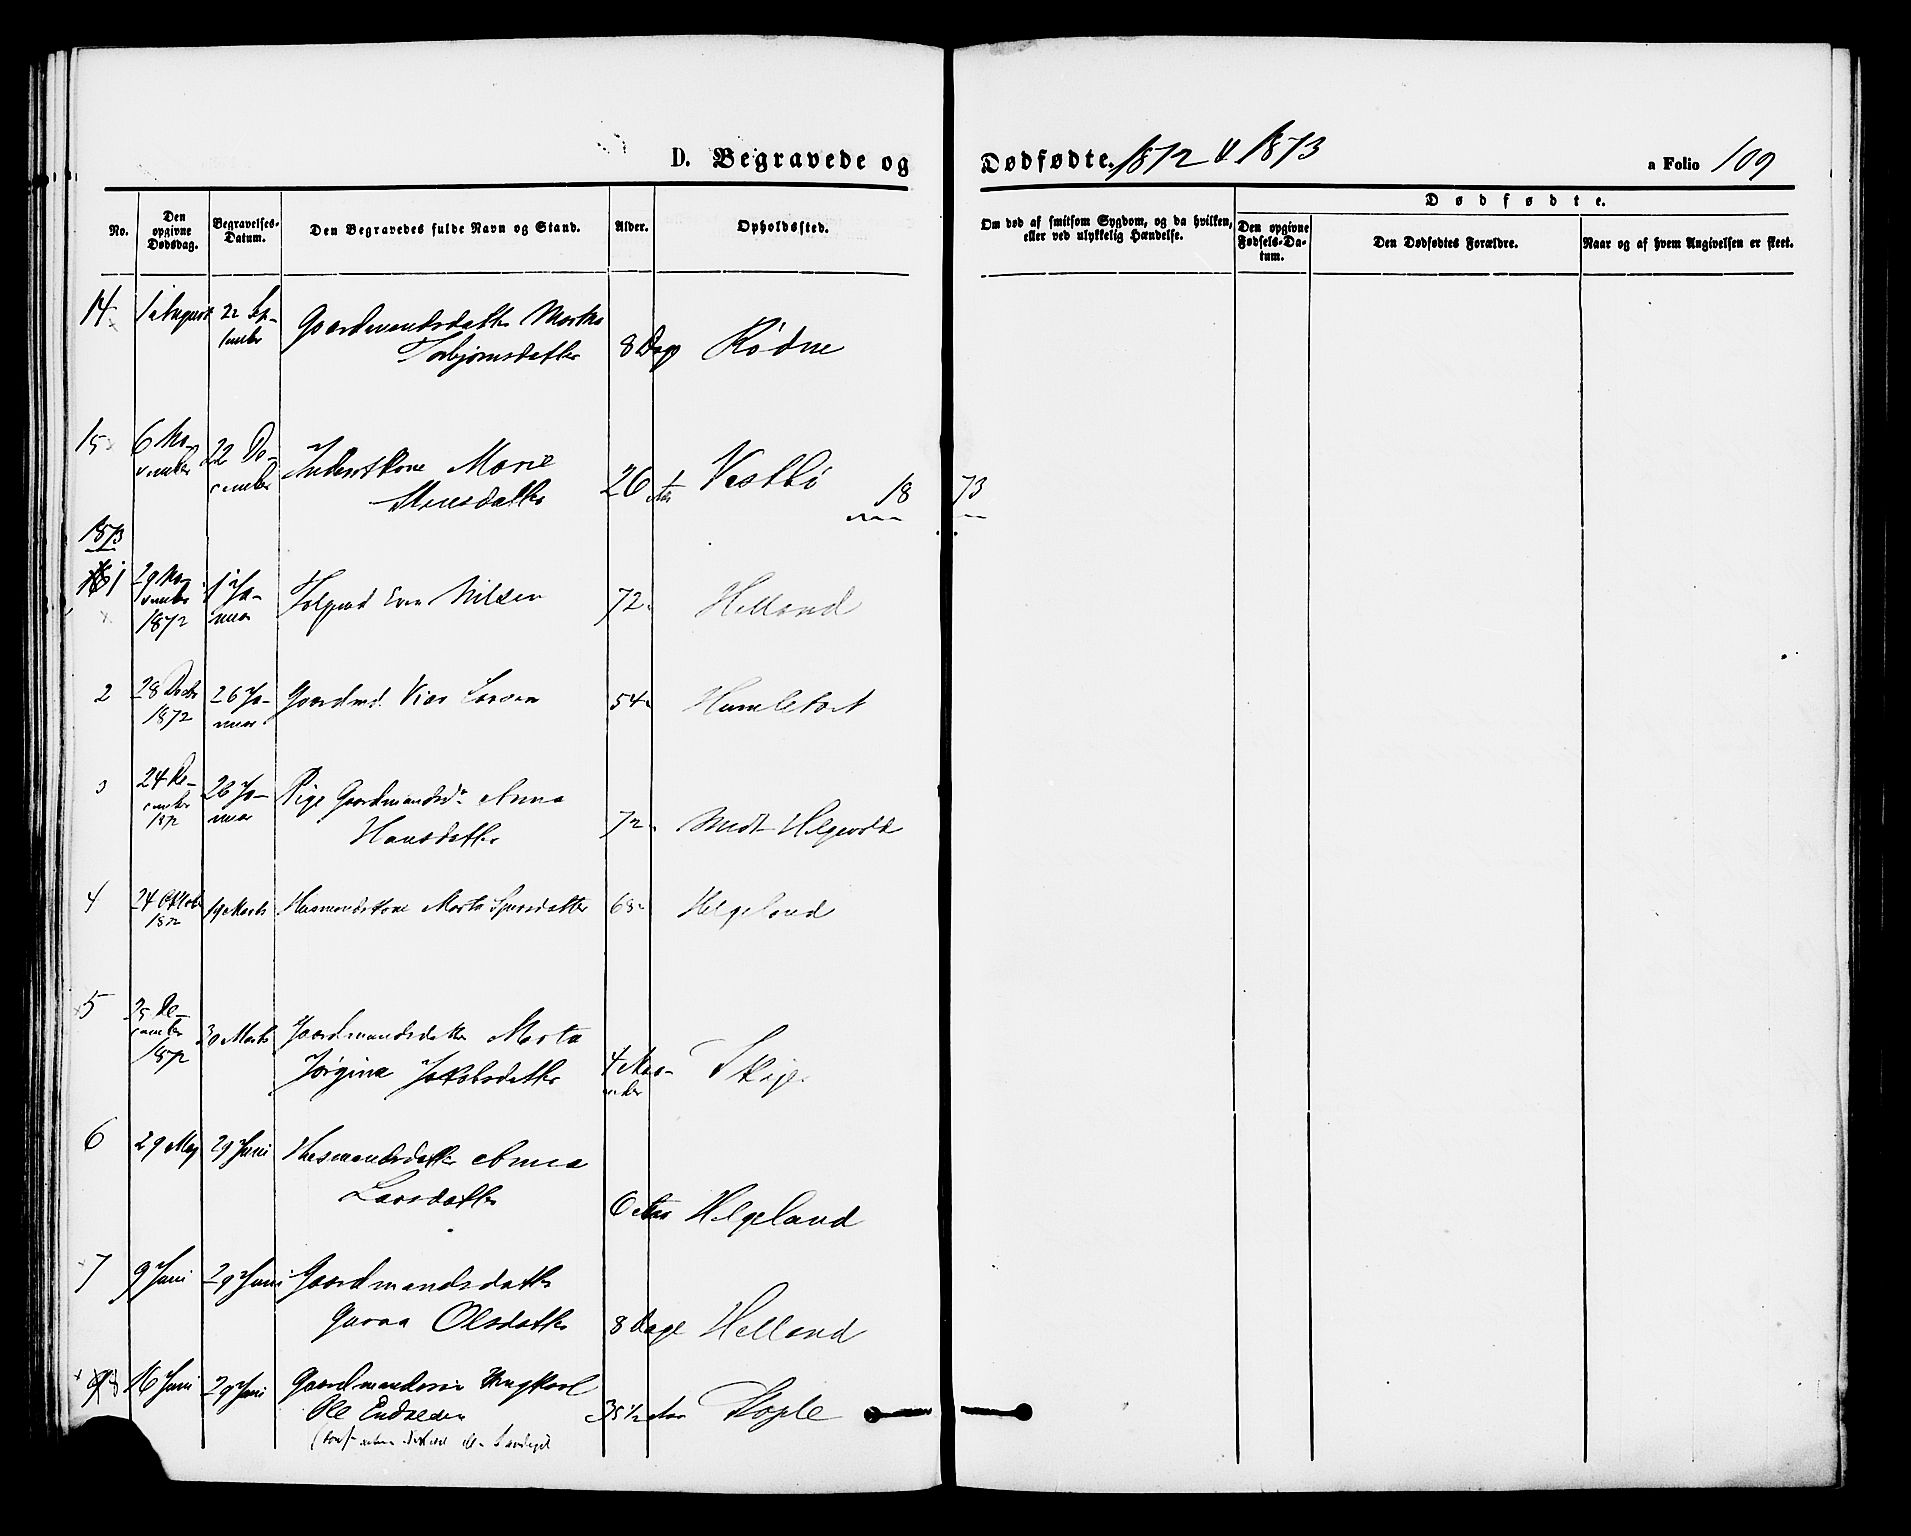 D. Begravede og Dødfødte. 1872 & 1873
a Folio 109
No.
Den opgivne Dødsdag.
Begravelses-Datum.
Den Begravedes fulde Navn og Stand.
Alder.
Opholdssted.
Om død af smitsom Sygdom, og da hvilken,
eller ved ulykkelig Hændelse.
Dødfødte.
Den opgivne Fødsels-Datum.
Den Dødfødtes Forældre.
Naar og af hvem Angivelsen er skeet.
14 1 August 22 Sep-
tember
Gaardmandsdatter Martha
Torbjørnsdatter 8 Dage Rødne
15 6 No-
vember
22 De-
cember
Inderstkone Marie
Monsdatter 26 Aar Vestbø
1873
1873
1 29 No-
vember
1872
1 Ja-
nuar
Folgemd Even Nilsen 72 Helland
2 28 Decbr
1872
26 Ja-
nuar
Gaardmd. Vier Larsen 54 Humlekot
3 24 De-
cember
1872
26 Ja-
nuar
Pige Gaardmandsdr Anna
Hansdatter 72 Midt Helgevold
4 24 Oktobr
1872
19 Marts Husmandskone Marta 68 Helgeland
5 25 De-
cember
1872
30 Marts Gaardmandsdatter Marta
Jørgine Jakobsdatter 4 Maa-
neder
6 29 Maj 29 Juni Husmandsdatter Anna
Larsdatter 6 Aar Helgeland
7 9 Juni 29 Juni Gaardmandsdatter
Olsdatter 8 Dage Helland
8 16 Juni 29 Juni Gaardmandssøn Ungkarl
Ole Endresen 35 1/2 Aar